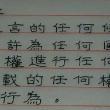 宣言的任何
許為任何國
權進行任何
載的任何權
行為。